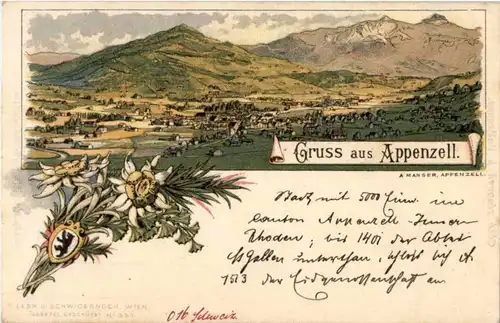 Gruss aus Appenzell.
A MANSER, APPENZELL.
Stadt mit 5000 Einw. im
Canton Appenzell-Inner
Rhoden; bis 1401 der Abtei
St Gallen unterthan, schloß sich
1513 der Eidgenossenschaft an
LEÓN & SCHWIDERNOCH, WIEN.
Ost Schweiz